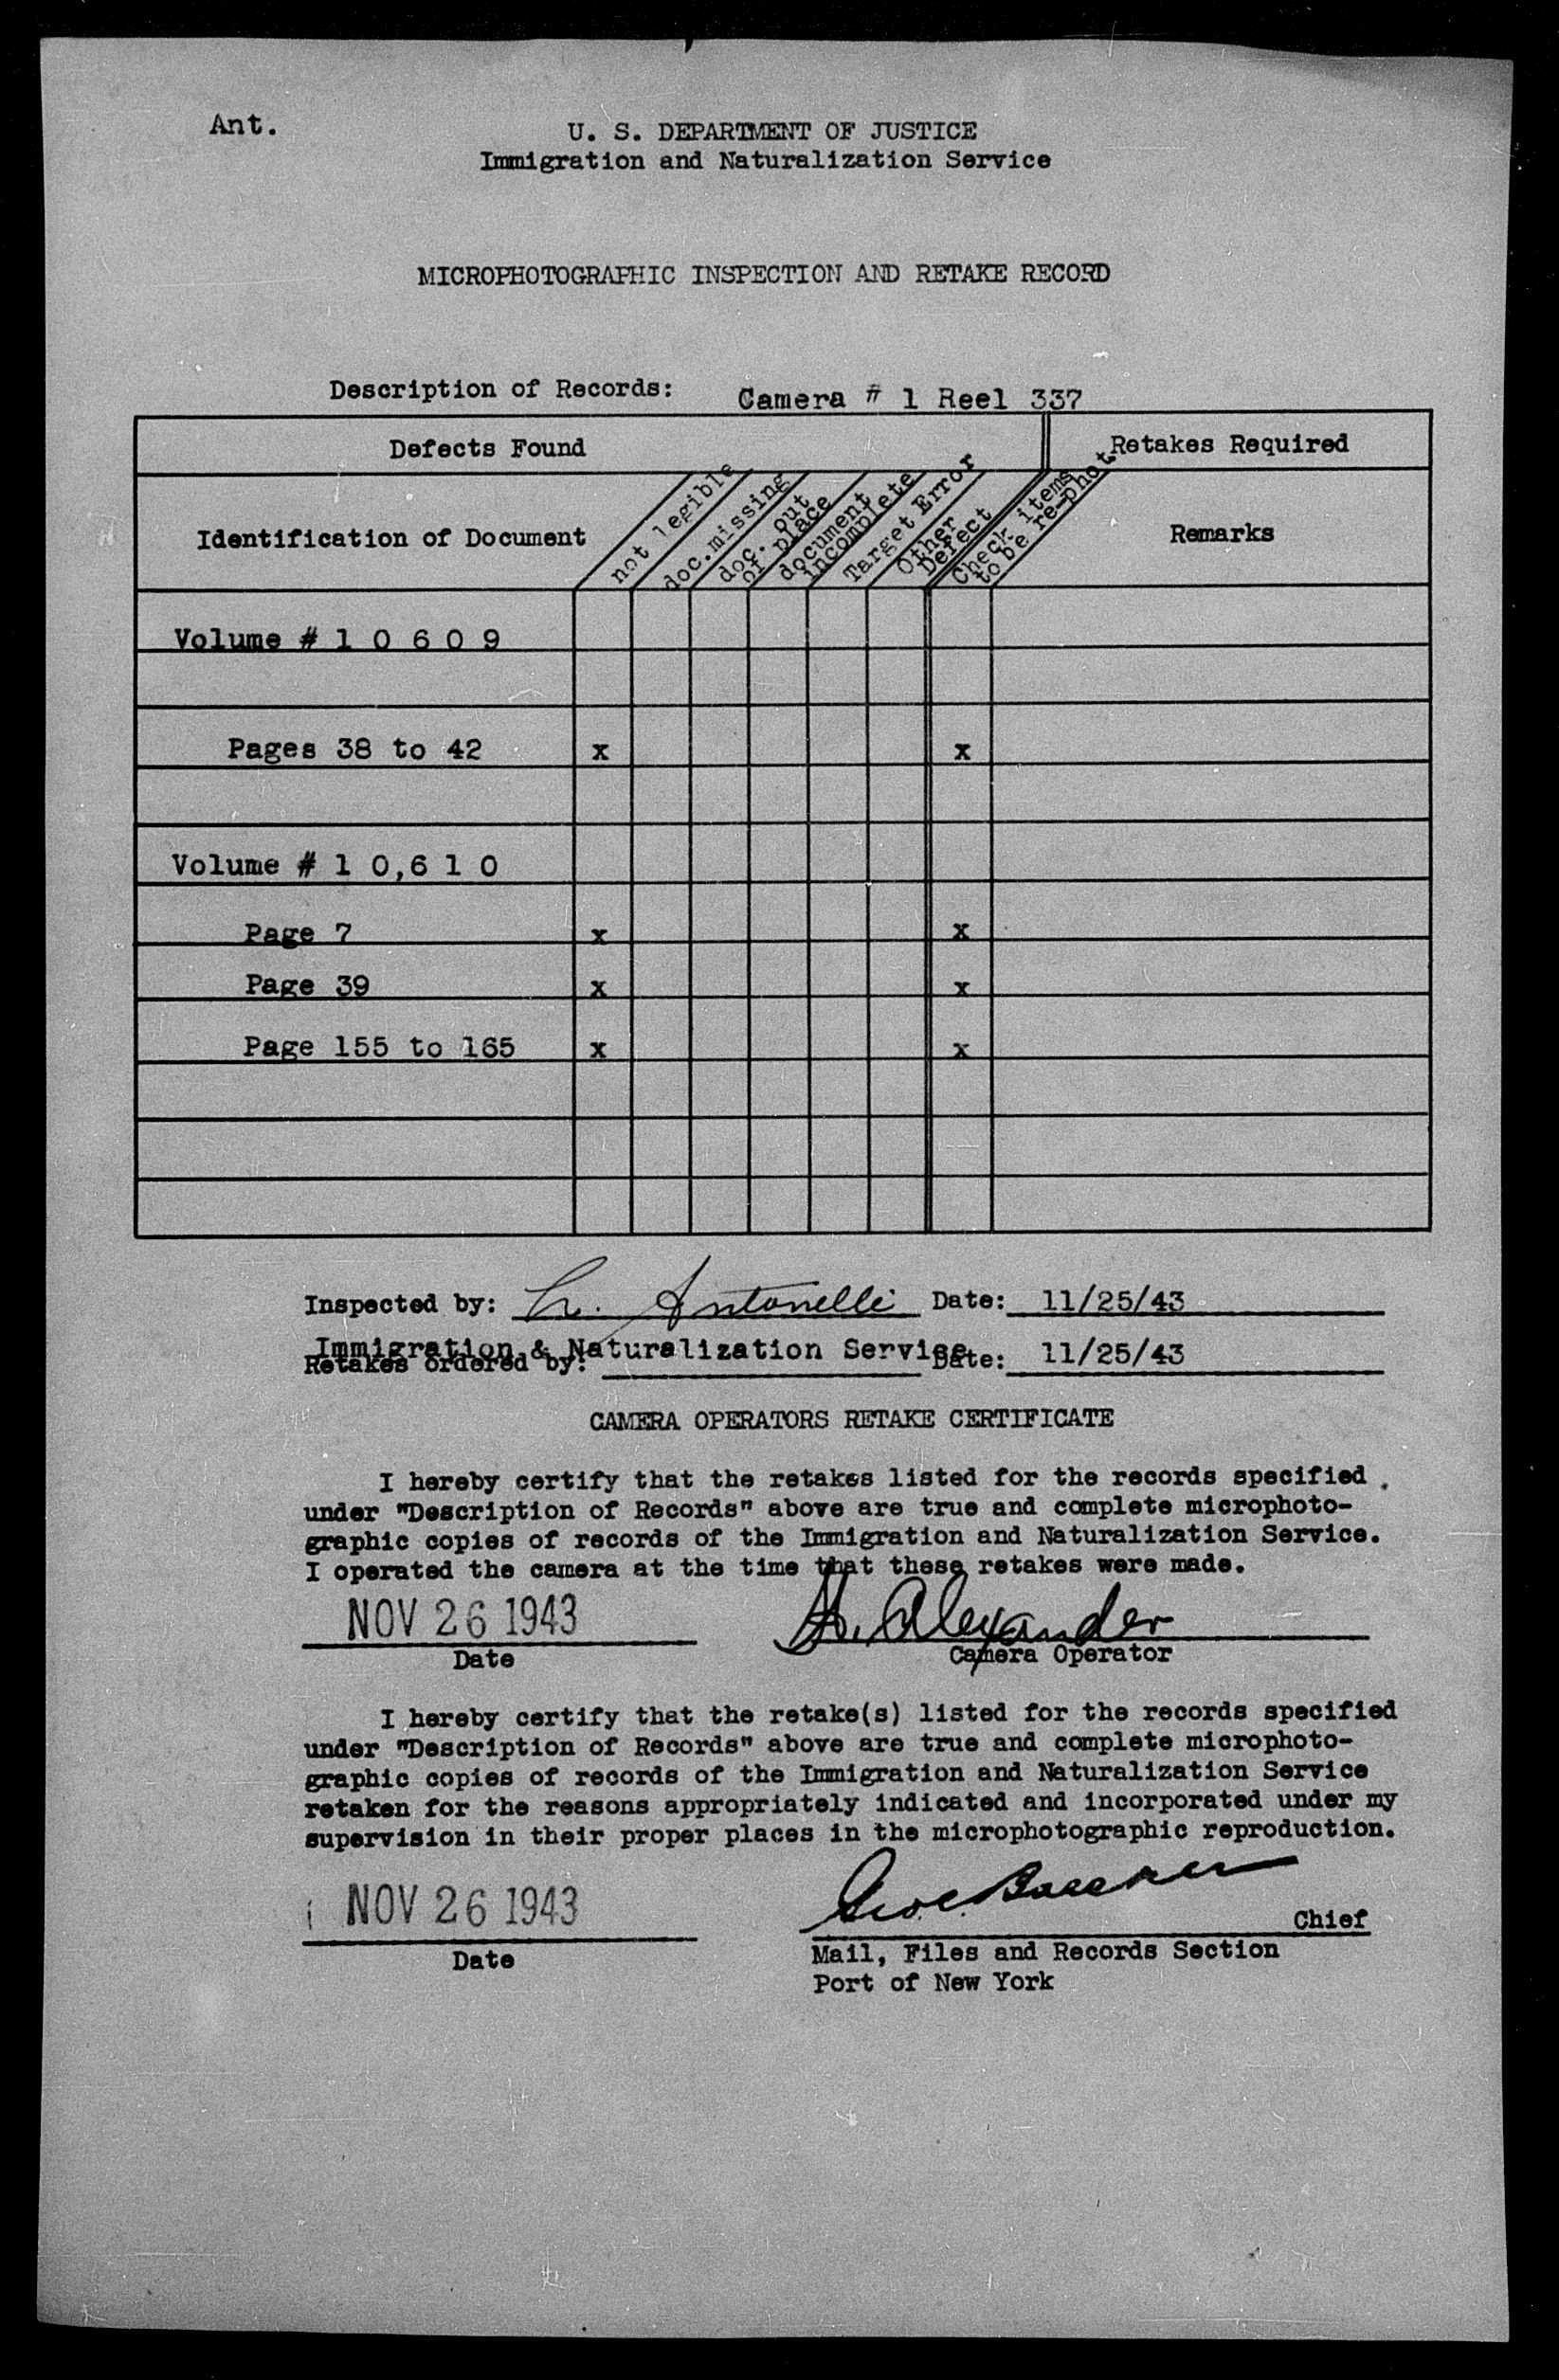 Ant.
U. S. DEPARTMENT OF JUSTICE
Immigration and Naturalization Service
MICROPHOTOGRAPHIC INSPECTION AND RETAKE RECORD
Description of Records: Camera # 1 Reel 337
Defects Found
Retakes Required
Identification of Document
not legible
doc.missing
doc. out
of place
document
incomplete
Target Error
Other
Defect
Check items
to be re-phot.
Remarks
Volume # 1 0 6 0 9
Pages 38 to 42 x x
Volume # 1 0,6 1 0
Page 7 x x
Page 39 x x
Page 155 to 165 x x
Inspected by: Antonelli Date: 11/25/43
Immigration & Naturalization Service
Retakes ordered by: Date: 11/25/43
CAMERA OPERATORS RETAKE CERTIFICATE
I hereby certify that the retakes listed for the records specified
under "Description of Records" above are true and complete microphoto-
graphic copies of records of the Immigration and Naturalization Service.
I operated the camera at the time that these retakes were made.
NOV 26 1943 Alexander
Date Camera Operator
I hereby certify that the retake(s) listed for the records specified
under "Description of Records" above are true and complete microphoto-
graphic copies of records of the Immigration and Naturalization Service
retaken for the reasons appropriately indicated and incorporated under my
supervision in their proper places in the microphotographic reproduction.
NOV 26 1943
Chief
Date
Mail, Files and Records Section
Port of New York